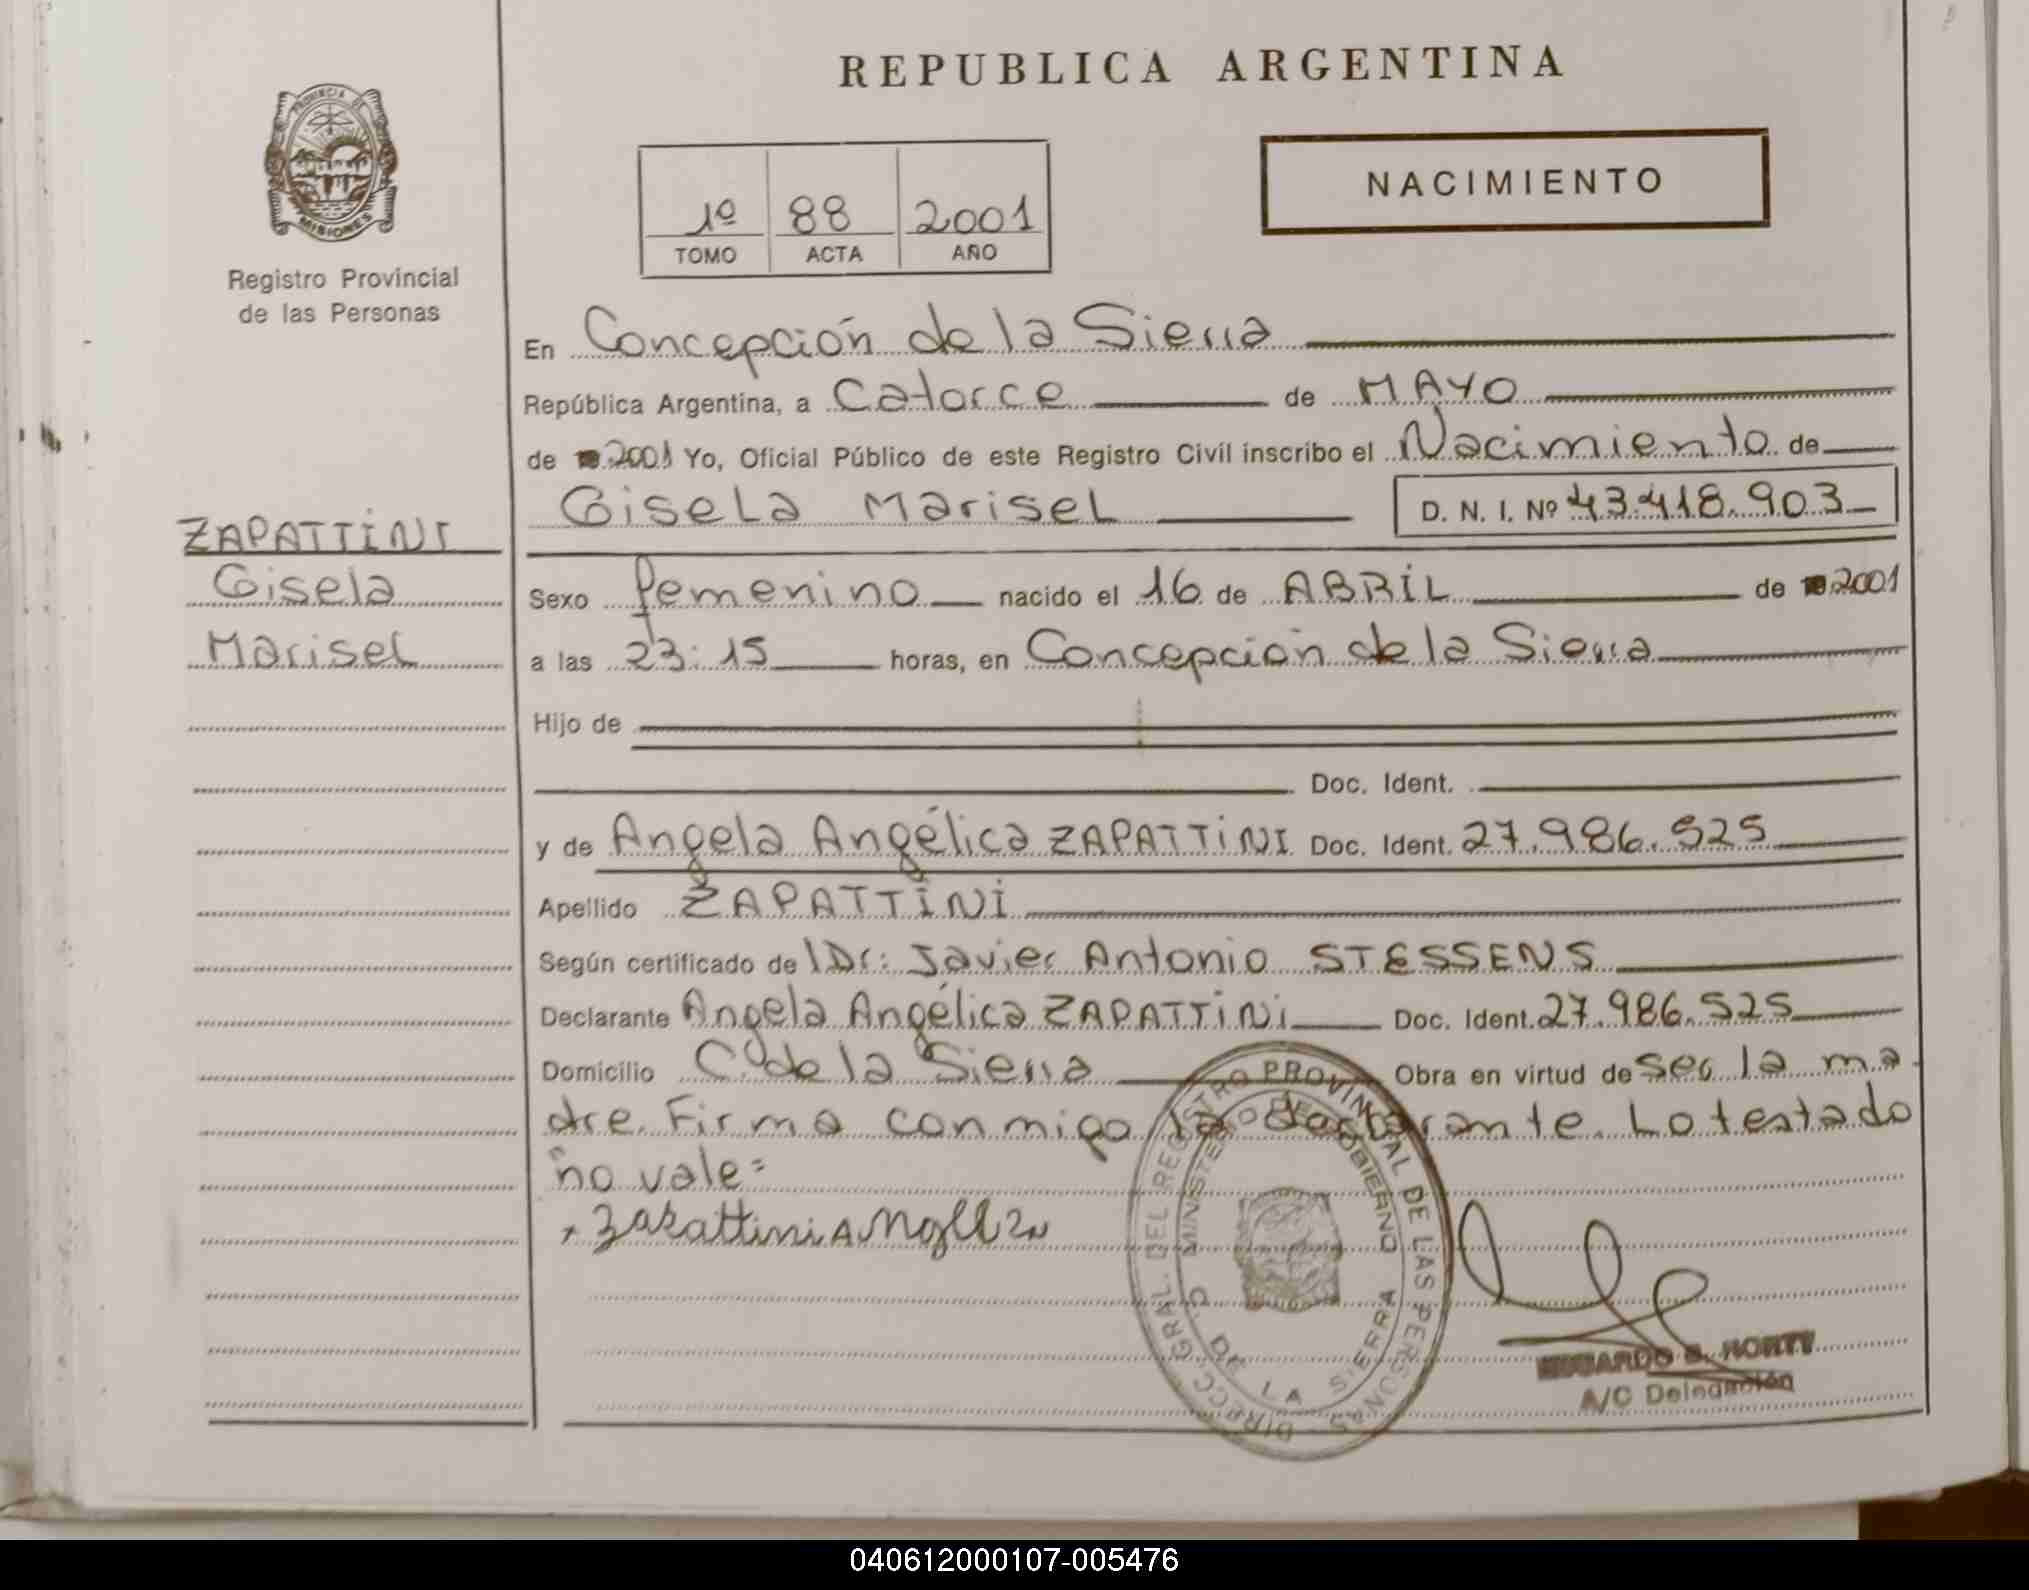 REPUBLICA ARGENTINA
PROVINCIA DE
MISIONES
Registro Provincial
de las Personas
1º 88 2001
TOMO ACTA AÑO
NACIMIENTO
En Concepción de la Sierra
República Argentina, a Catorce de MAYO
de 2001 Yo, Oficial Público de este Registro Civil inscribo el Nacimiento de
Gisela Marisel D. N. I. Nº 43.418.903
ZAPATTINI
Gisela
Marisel
Sexo femenino nacido el 16 de ABRIL de 2001
a las 23:15 horas, en Concepción de la Sierra
Hijo de
Doc. Ident.
y de Angela Angélica ZAPATTINI Doc. Ident. 27.986.525
Apellido ZAPATTINI
Según certificado de Dr: Javier Antonio STESSENS
Declarante Angela Angélica ZAPATTINI Doc. Ident. 27.986.525
Domicilio C. de la Sierra Obra en virtud de ser la ma
dre. Firma conmigo la declarante. Lo testado
"no vale"
Zapattini
DIRECC. GRAL. DEL REGISTRO PROVINCIAL DE LAS PERSONAS
MINISTERIO DE GOBIERNO
C. DE LA SIERRA
EDUARDO HORTY
A/C Delegación
040612000107-005476